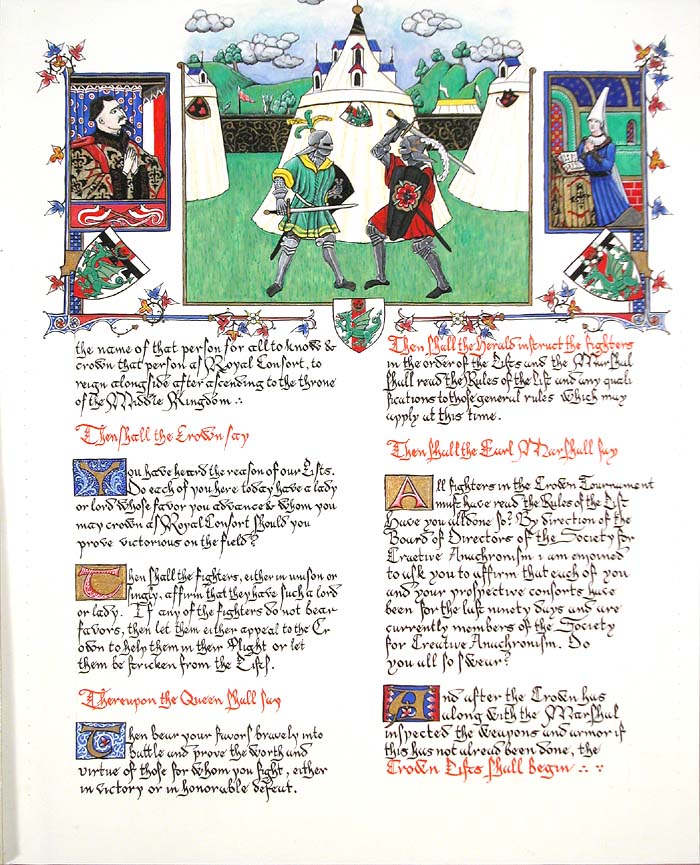 the name of that person for all to know &
crown that person as Royal Consort, to
reign alongside after ascending to the throne
of the Middle Kingdom
Then shall the Crown say
You have heard the reason of our Lists.
Do each of you here today have a lady
or lord whose favor you advance & whom you
may crown as Royal Consort should you
prove victorious on the field?
Then shall the fighters, either in unison or
singly, affirm that they have such a lord
or lady. If any of the fighters do not bear
favors, then let them either appeal to the Cr
own to help them in their Plight or let
them be stricken from the Lists.
Thereupon the Queen shall say
Then bear your favors bravely into
battle and prove the worth and
virtue of those for whom you fight, either
in victory or in honorable defeat.
Then shall the Herald instruct the fighters
in the order of the Lists and the Marshal
shall read the Rules of the List and any quali
fications to those general rules which may
apply at this time.
Then shall the Earl Marshall say
All fighters in the Crown Tournament
must have read the Rules of the List
Have you all done so? By direction of the
Board of Directors of the Society for
Craetive Anachronism i am
to ask you to affirm that each of you
and your prospective consorts have
been for the last ninety days and are
currently members of the Society
for Creative Anachronism. Do
you all so swear?
And after the Crown has
along with the Marshal
inspected the weapons and armor if
this has not alread been done, the
Crown Lists shall begin